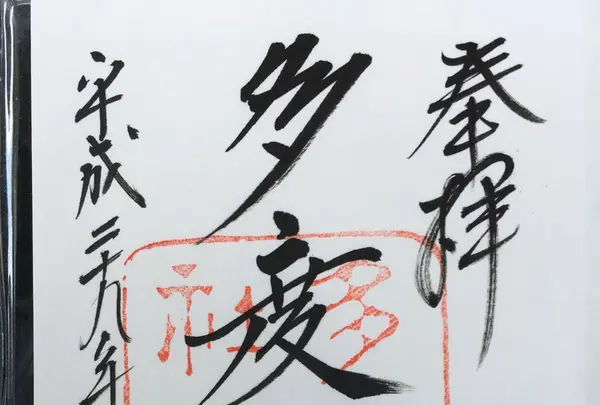 奉拝
多度
平成二十九年